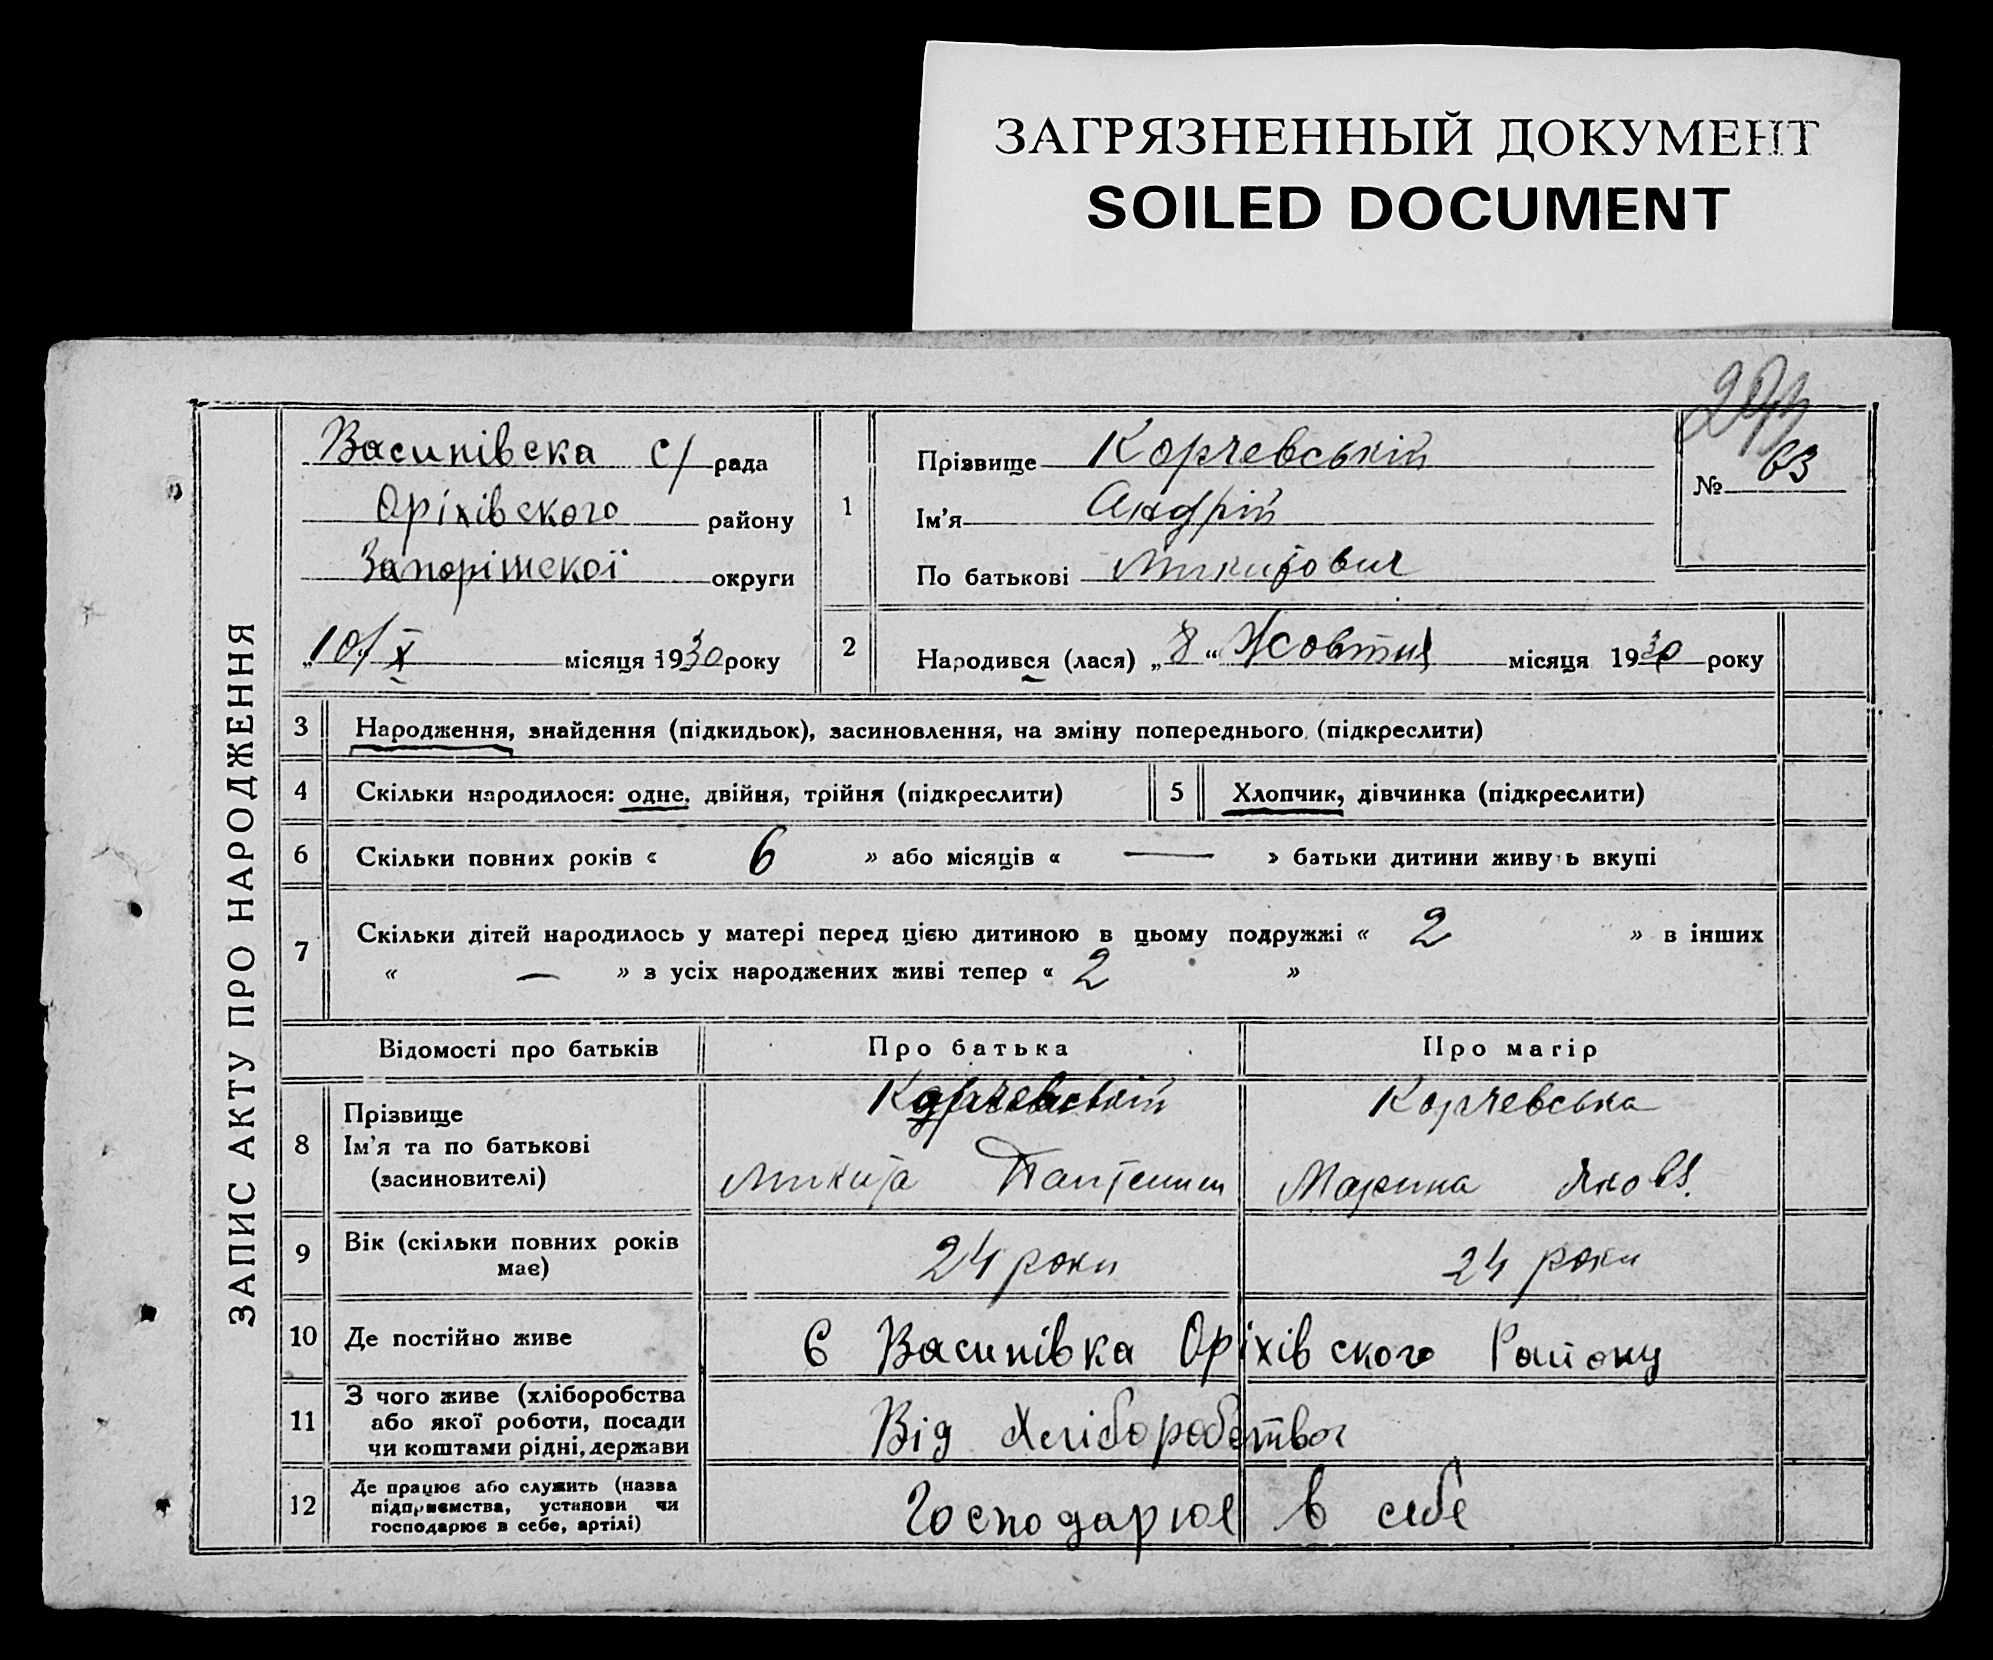 ЗАГРЯЗНЕННЫЙ ДОКУМЕНТ
SOILED DOCUMENT
ЗАПИС АКТУ ПРО НАРОДЖЕННЯ
Васинівска с/рада
Оріхівского району
Запорішскої округи
„10/X місяця 1930 року
1
Прізвище Корчевській
Ім'я Андрій
По батькові Микитович
№ 63
2
Народився (лася) „8“ Жовтня місяця 1930 року
3 Народження, знайдення (підкидьок), засиновлення, на зміну попереднього (підкреслити)
4 Скільки народилося: одне, двійня, трійня (підкреслити)
5 Хлопчик, дівчинка (підкреслити)
6 Скільки повних років « 6 » або місяців « — » батьки дитини живуть вкупі
7 Скільки дітей народилось у матері перед цією дитиною в цьому подружжі « 2 » в інших
« — » з усіх народжених живі тепер « 2 »
Відомості про батьків Про батька Про матір
8 Прізвище Корчевській Корчевська
Ім'я та по батькові
(засиновителі) Микита Марина Яков.
9 Вік (скільки повних років має) 24 роки 24 роки
10 Де постійно живе С Васинівка Оріхівского Району
11 З чого живе (хліборобства
або якої роботи, посади
чи коштами рідні, держави Від Хліборобства
12 Де працює або служить (назва
підприємства, установи чи
господарює в себе, артілі) Господарює в себе